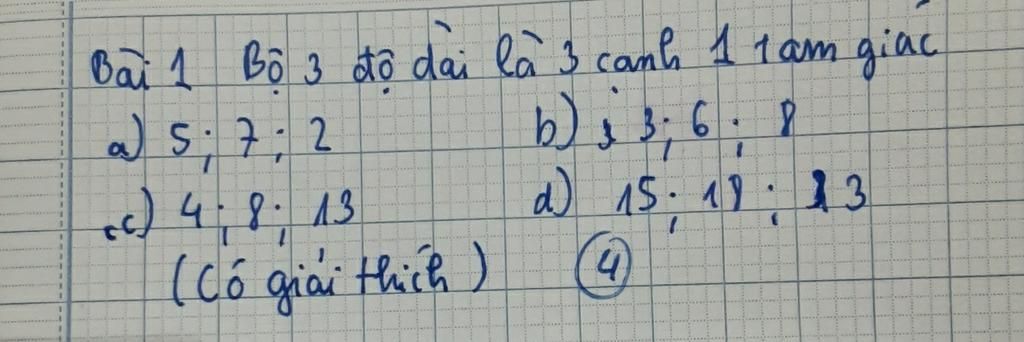 Bài 1 Bộ 3 độ dài là 3 cạnh 1 tam giác
a) 5; 7; 2 b) 3; 6; 8
c) 4; 8; 13 d) 15; 18; 3
(Có giải thích) 4